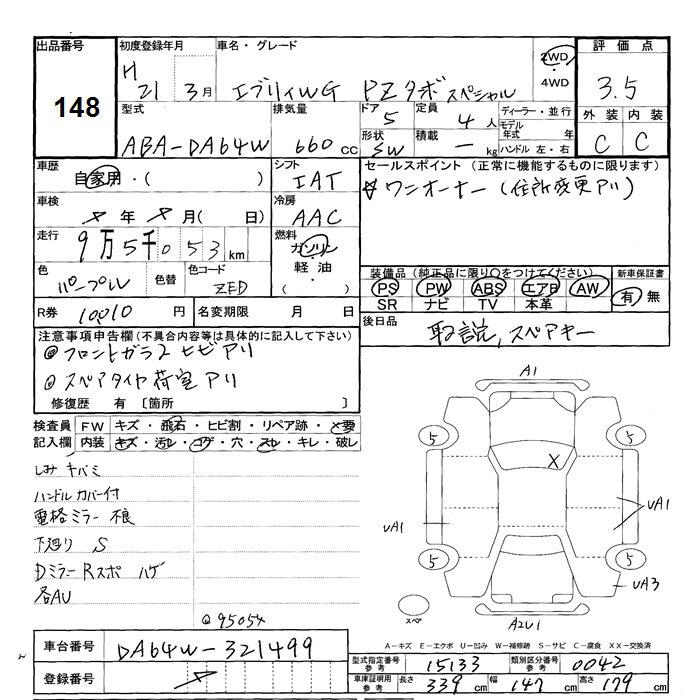 出品番号 初度登録年月 車名・グレード 評価点
148
H21 3月 エブリィWG PZターボスペシャル
2WD・4WD
3.5
型式 排気量 ドア 定員 ディーラー・並行
ABA-DA64W 660cc 5 4人 モデル年式 年式
形状 積載 ハンドル 左・右
SW ー kg
外装 内装
C C
車歴 シフト セールスポイント(正常に機能するものに限ります)
自家用・( ) IAT ワンオーナー(住所変更アリ)
車検 冷房
年 月( 日) AAC
走行 燃料
9万5千053km ガソリン・軽油・( )
装備品(純正品に限り○をつけてください) 新車保証書
色 色替 色コード
パープル ZED
PS PW ABS エアB AW
SR ナビ TV 本革
有 無
R券 10010円 名変期限 月 日
後日品 取説,スペアキー
注意事項申告欄(不具合内容等は具体的に記入して下さい)
◎フロントガラス ヒビアリ
◎スペアタイヤ荷室アリ
修復歴 有 〔箇所 〕
検査員記入欄 FW キズ・飛石・ヒビ割・リペア跡・×要
内装 キズ・汚レ・コゲ・穴・スレ・キレ・破レ
シミ キバミ
ハンドルカバー付
電格ミラー不良
下廻り S
Dミラー Rスポ ハゲ
各AU
◎95054
A1
5 5
X
UA1 UA1
5 5
UA3
スペア A2U1
A-キズ E-エクボ U-凹み W-補修跡 S-サビ C-腐食 XX-交換済
車台番号 DA64W-321499
登録番号
型式指定番号参考 15133 類別区分番号参考 0042
車庫証明用参考 長さ 339cm 幅 147cm 高さ 179cm